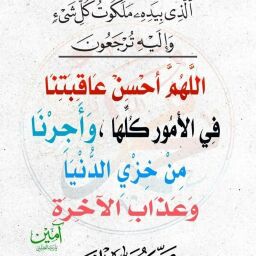 الَّذِي بِيَدِهِ مَلَكُوتُ كُلِّ شَيْءٍ
وَإِلَيْهِ تُرْجَعُونَ
اللَّهُمَّ أَحْسِنْ عَاقِبَتِنَا
فِي الْأُمُورِ كُلِّهَا ، وَأَجِرْنَا
مِنْ خِزْيِ الدُّنْيَا
وَعَذَابِ الْآخِرَةِ
آمِيْن